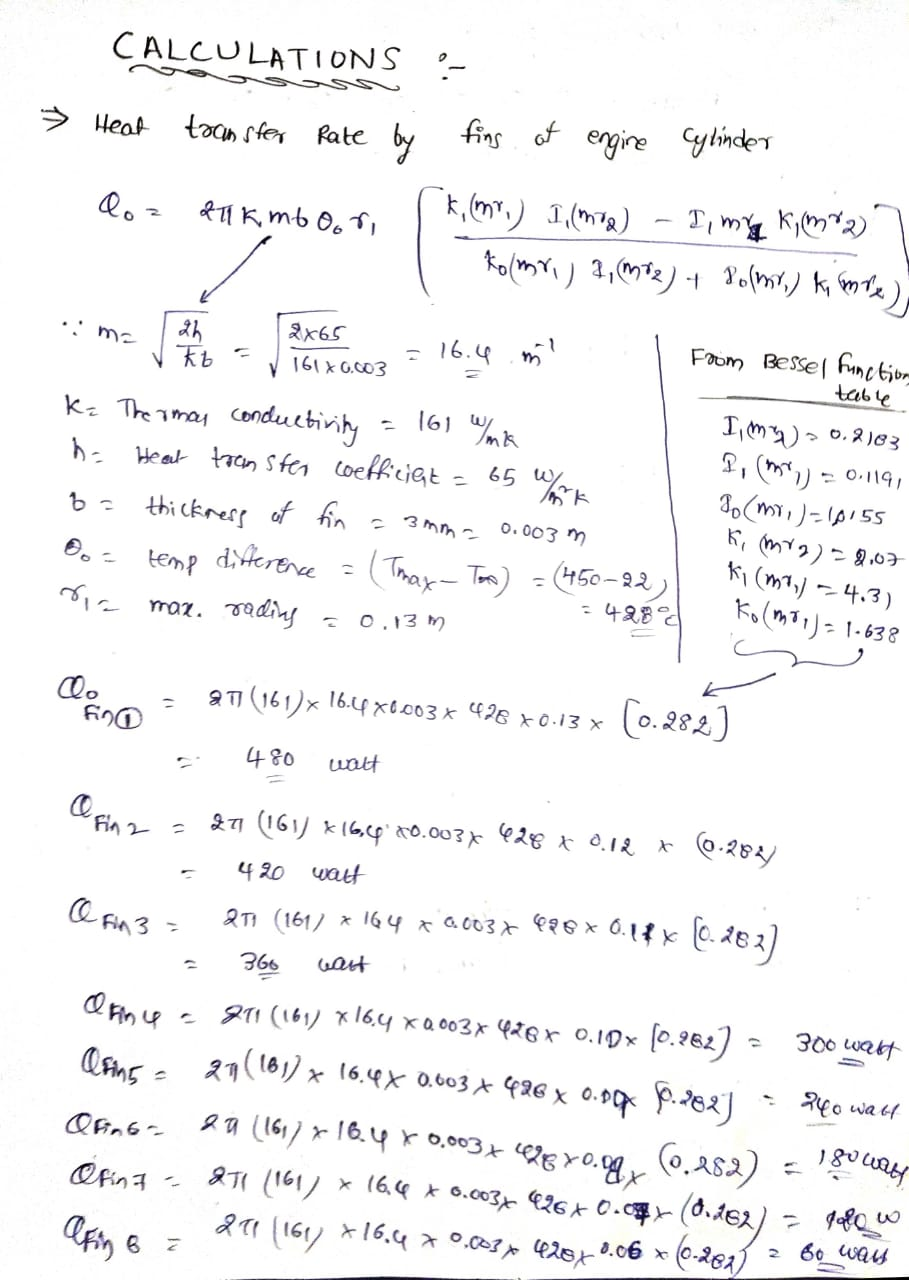 CALCULATIONS :-
⇒ Heat transfer Rate by fins of engine Cylinder
Q₀ = 2π K m b θ₀ r₁ [ K₁(mr₁) I₁(mr₂) – I₁ mr₁ K₁(mr₂) / K₀(mr₁) I₁(mr₂) + I₀(mr₁) K₁(mr₂) ]
∵ m = √(2h / kb) = √(2×65 / 161×0.003) = 16.4 m⁻¹
K = Thermal conductivity = 161 W/mk
h = Heat transfer coefficient = 65 W/m²k
b = thickness of fin = 3mm = 0.003 m
θ₀ = temp difference = (Tmax – T∞) = (450–22)
= 428°C
r₁ = max. radius = 0.13 m
From Bessel function
table
I₁(mr₂) = 0.2183
I₁(mr₁) = 0.1191
K₁(mr₂) = 2.07
K₁(mr₁) = 4.31
K₀(mr₁) = 1.638
Q₀ Fin① = 2π(161)× 16.4×0.003× 428 ×0.13 × [0.282]
= 480 watt
Q Fin 2 = 2π (161) ×16.4×0.003× 428 × 0.12 × (0.282)
= 420 watt
Q Fin 3 = 2π (161) × 164 × 0.003× 428× 0.11× [0.282]
= 360 watt
Q Fin 4 = 2π (161) ×16.4 ×0.003× 428× 0.10× [0.282] = 300 watt
Q Fin 5 = 2π (161) × 16.4× 0.003× 428 × [0.282] = 240 watt
Q Fin 6 = 2π (161) × 16.4 × 0.003× 428 × (0.282) = 180 watt
Q Fin 7 = 2π (161) × 16.4 × 0.003× 428 × (0.282) = 120 W
Q Fin 8 = 2π (161) ×16.4 × 0.003× 428× 0.06 × (0.282) = 60 watt